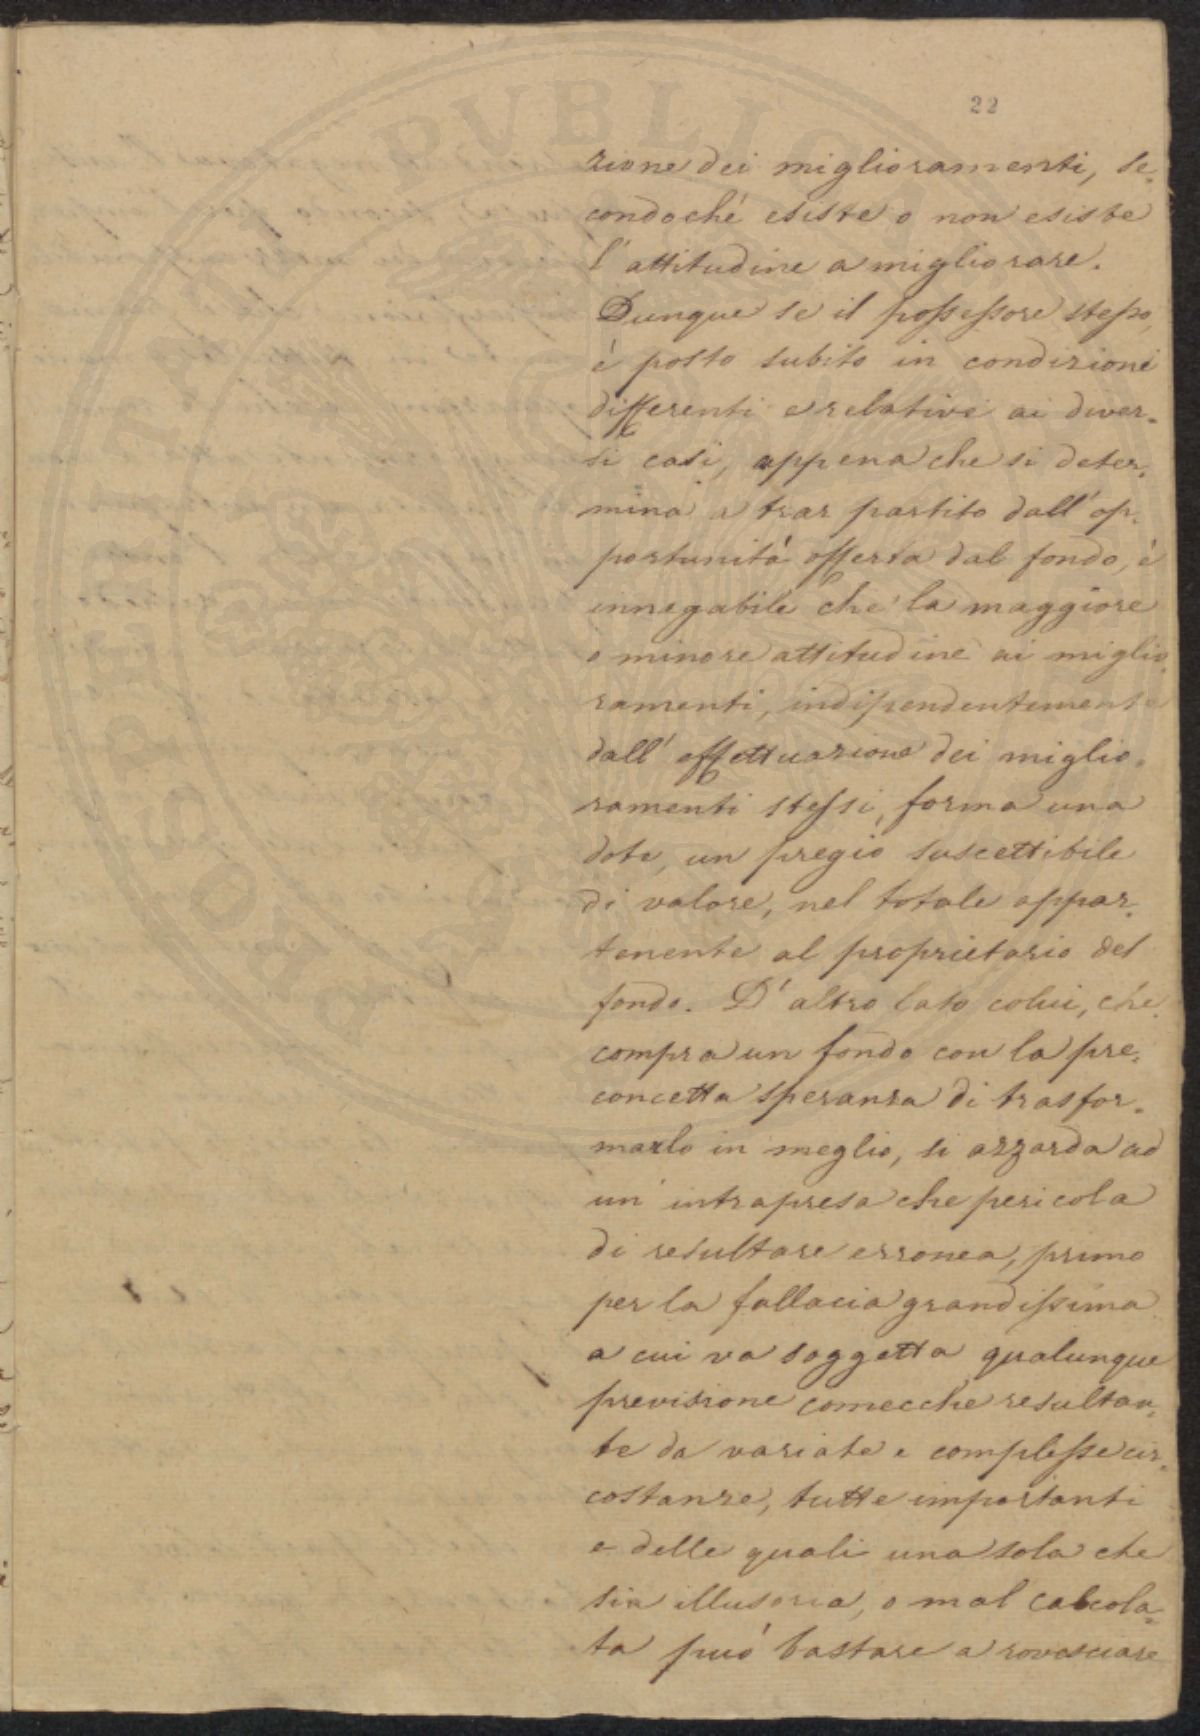 22
zione dei miglioramenti, se-
condoché esiste o non esiste
l'attitudine a migliorare.
Dunque se il possessore stesso,
è posto subito in condizioni
differenti e relative ai diver-
si casi, appena che si deter-
mina a trar partito dall'op-
portunità offerta dal fondo, è
innegabile che la maggiore
o minore attitudine ai miglio-
ramenti, indipendentemente
dall'effettuazione dei miglio-
ramenti stessi, forma una
dote, un pregio suscettibile
di valore, nel totale appar-
tenente al proprietario del
fondo. D'altro lato colui, che
compra un fondo con la pre-
concetta speranza di trasfor-
marlo in meglio, si azzarda ad
un'intrapresa che pericola
di resultare erronea, primo
per la fallacia grandissima
a cui va soggetta qualunque
previsione comecche resultan-
te da variate e complesse cir-
costanze, tutte importanti
e delle quali una sola che
sia illusoria, o mal calcola-
ta può bastare a rovesciare